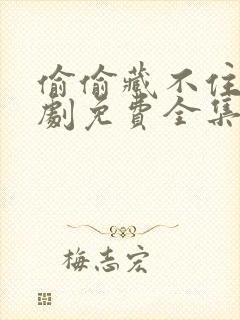 偷偷藏不住
劇免費全集
梅志宏